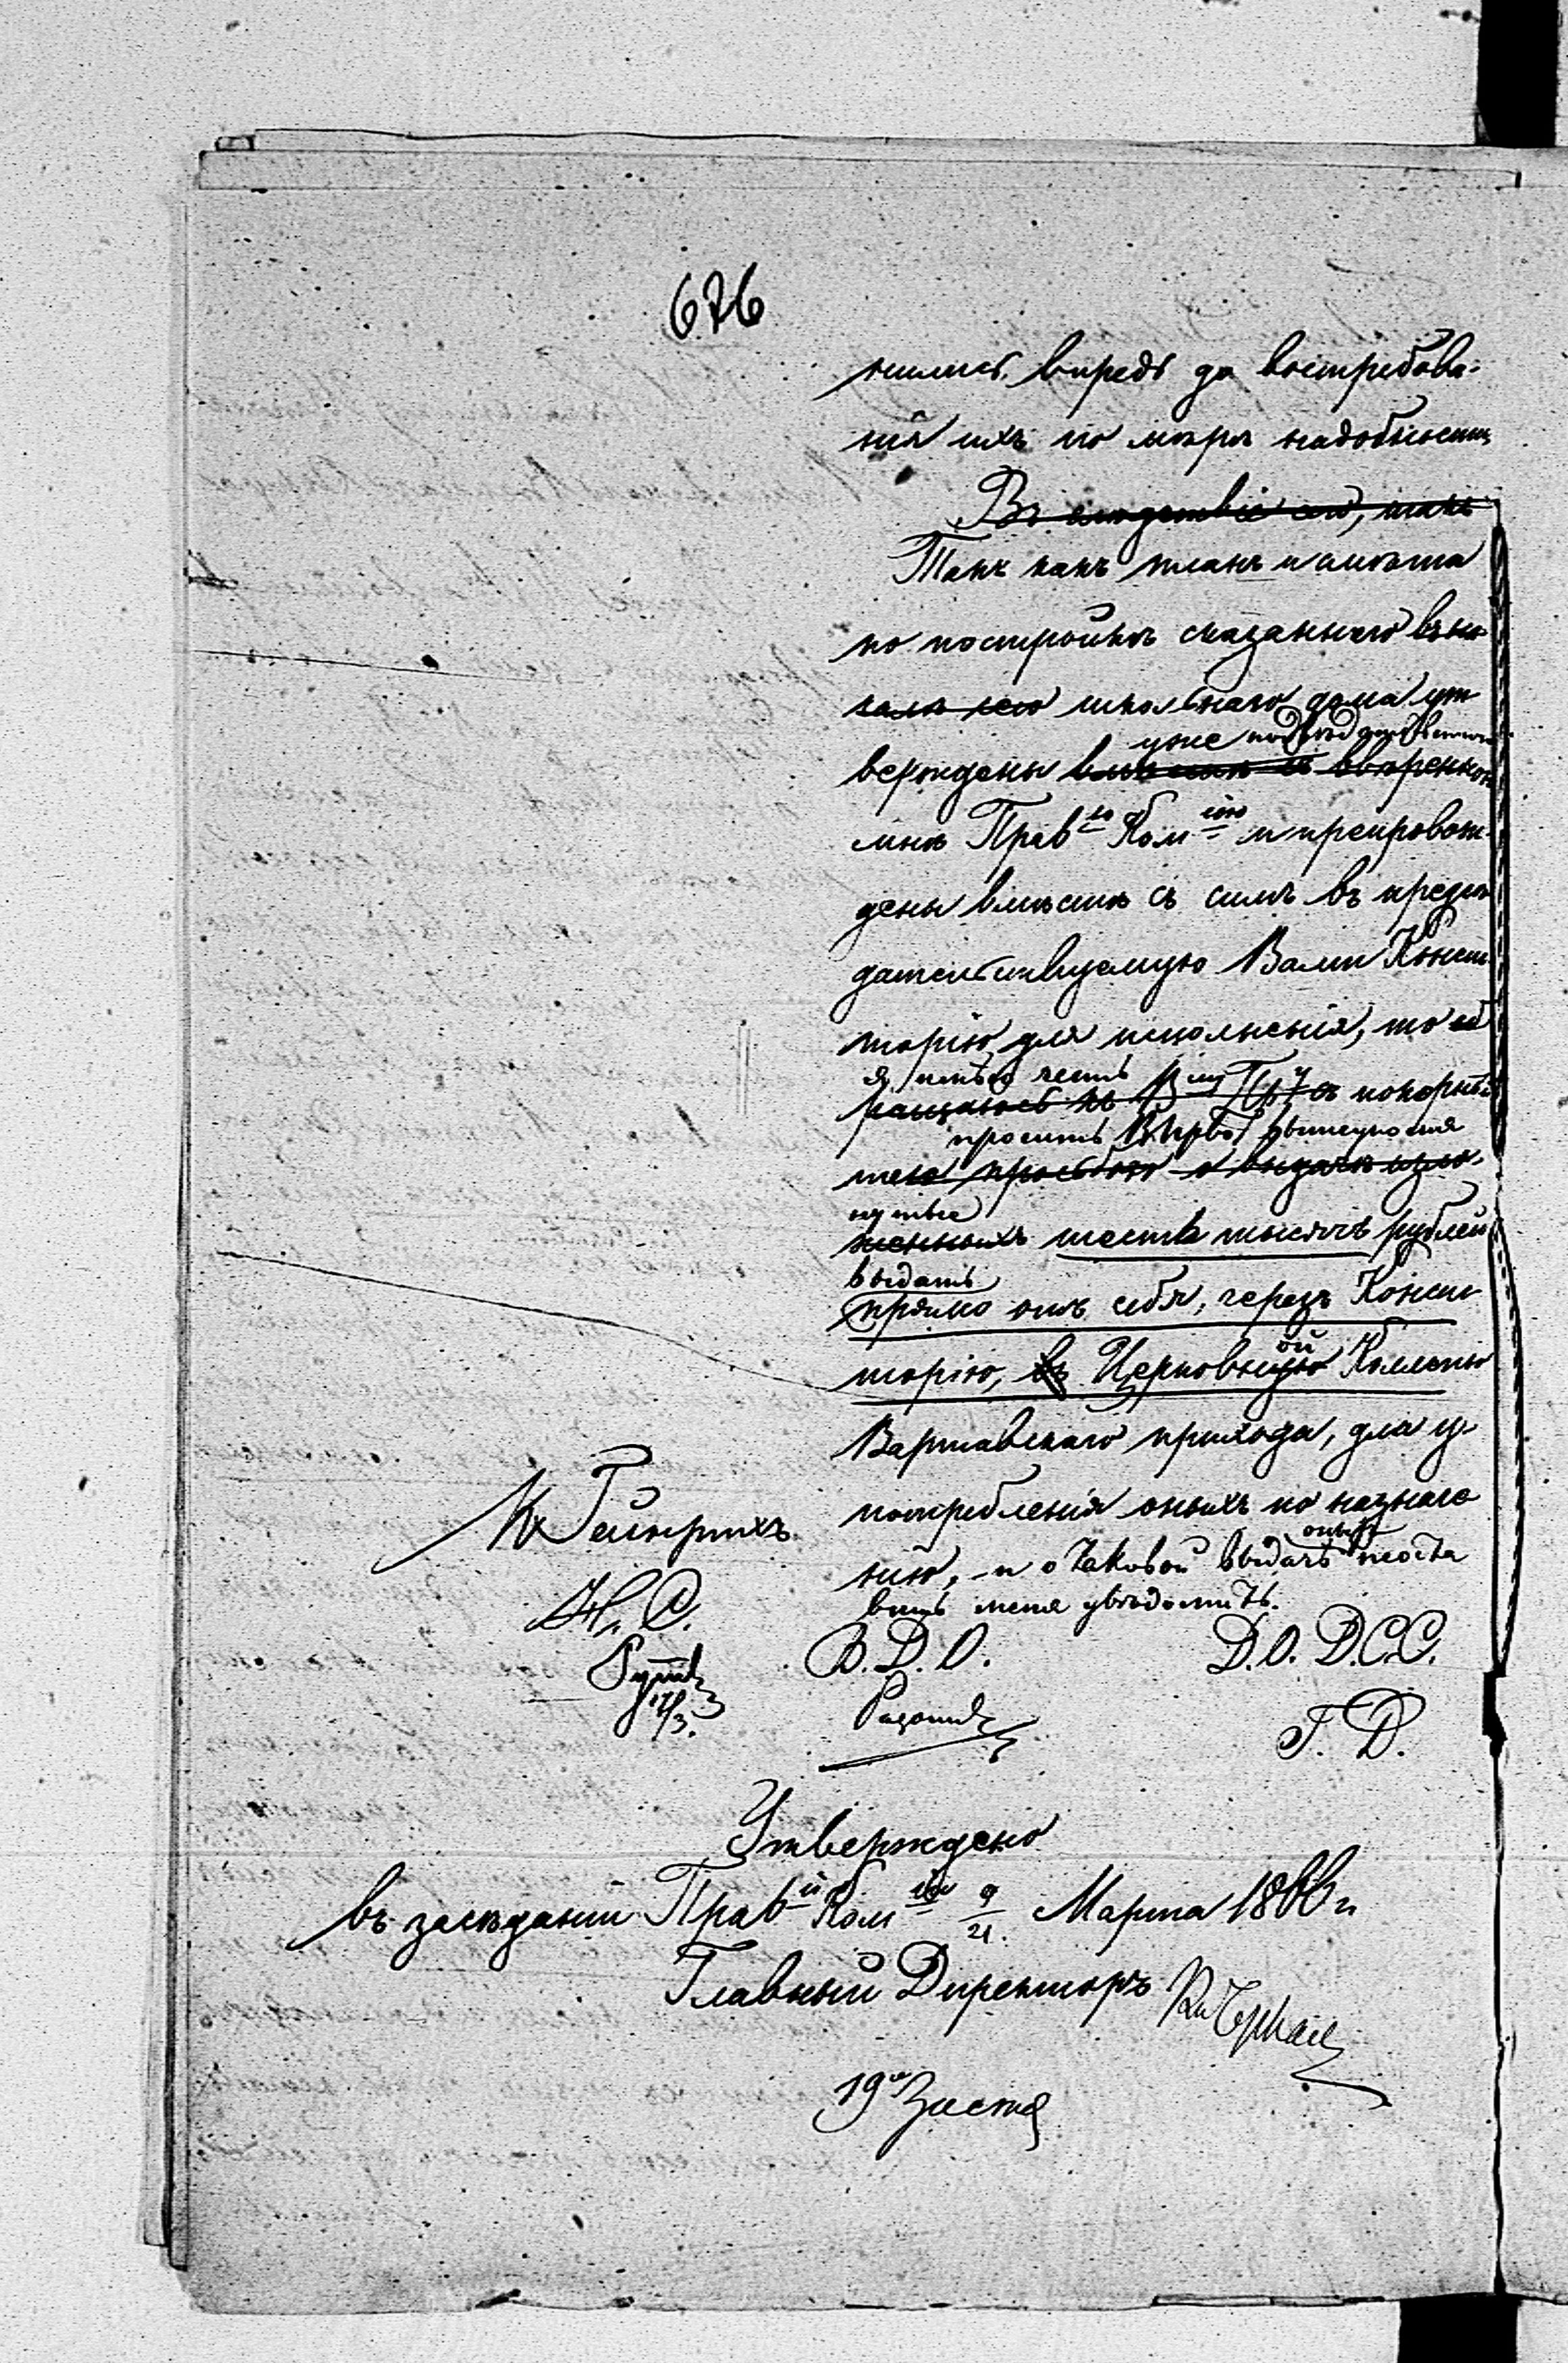 676
нились впредь до востребова-
нія ихъ по мѣрѣ надобности
Въ слѣдствіе сего, такъ
Такъ какъ планъ и смѣта
по постройкѣ сказаннаго
школьнаго дома ут
уже
верждены ввѣренною
мнѣ Прав ю Ком іею и препровож-
дены вмѣстѣ съ симъ въ предсѣ
дательствуемую Вами Консис
торію для исполненія, то
я имѣю честь
покорнѣй
просить вышеупомя
шею просьбою о выдачѣ изло-
нутые
женныхъ шесть тысячъ рублей
выдать
прямо отъ себя, черезъ Консис
ой
торію, въ Церковную Коллегію
Варшавскаго прихода, для у-
потребленія оныхъ по назначе
нію, и о таковой выдачѣ не оста
вить меня увѣдомить.
Н. С.
В. Д. О.
Д. О. Д. С. С.
17/3.
Г. Д.
Утверждено
въ засѣданіи Прав й Ком іи 9/21 Марта 1866 г.
Главный Директоръ